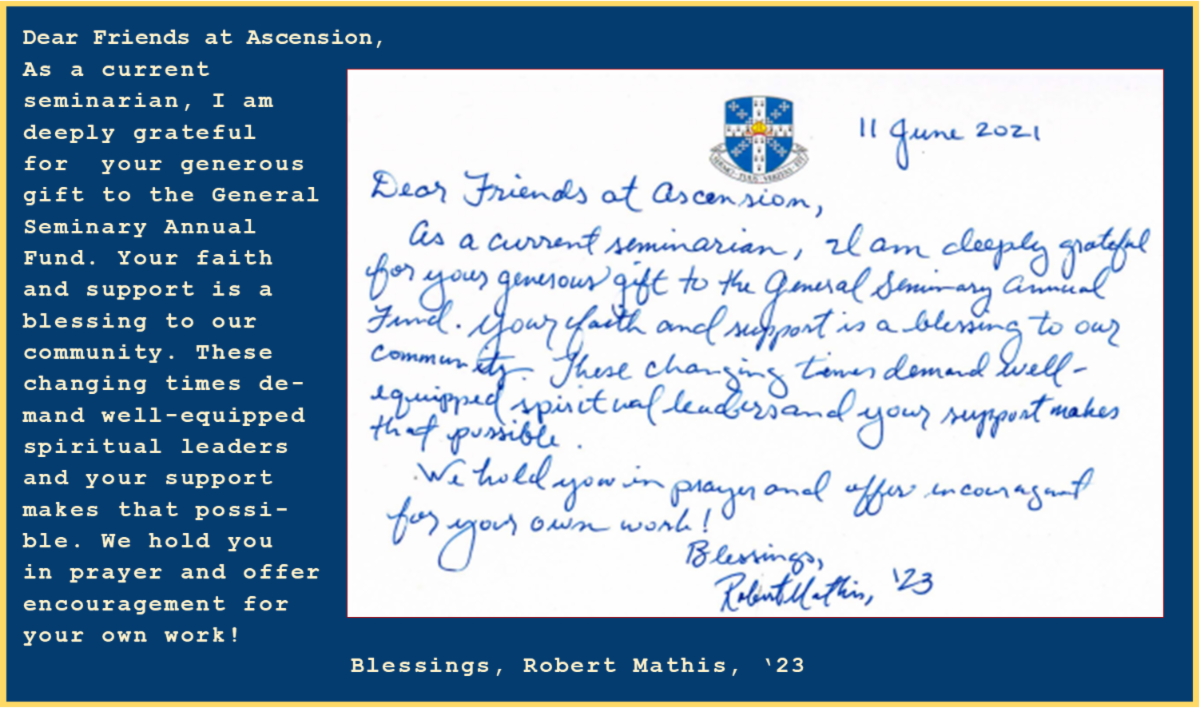 Dear Friends at Ascension,
As a current
seminarian, I am
deeply grateful
for your generous
gift to the General
Seminary Annual
Fund. Your faith
and support is a
blessing to our
community. These
changing times de-
mand well-equipped
spiritual leaders
and your support
makes that possi-
ble. We hold you
in prayer and offer
encouragement for
your own work!
11 June 2021
Dear Friends at Ascension,
As a current seminarian, I am deeply grateful
for your generous gift to the General Seminary Annual
Fund. Your faith and support is a blessing to our
community. These changing times demand well-
equipped spiritual leaders and your support makes
that possible.
We hold you in prayer and offer encouragement
for your own work!
Blessings,
Robert Mathis, '23
Blessings, Robert Mathis, ‘23